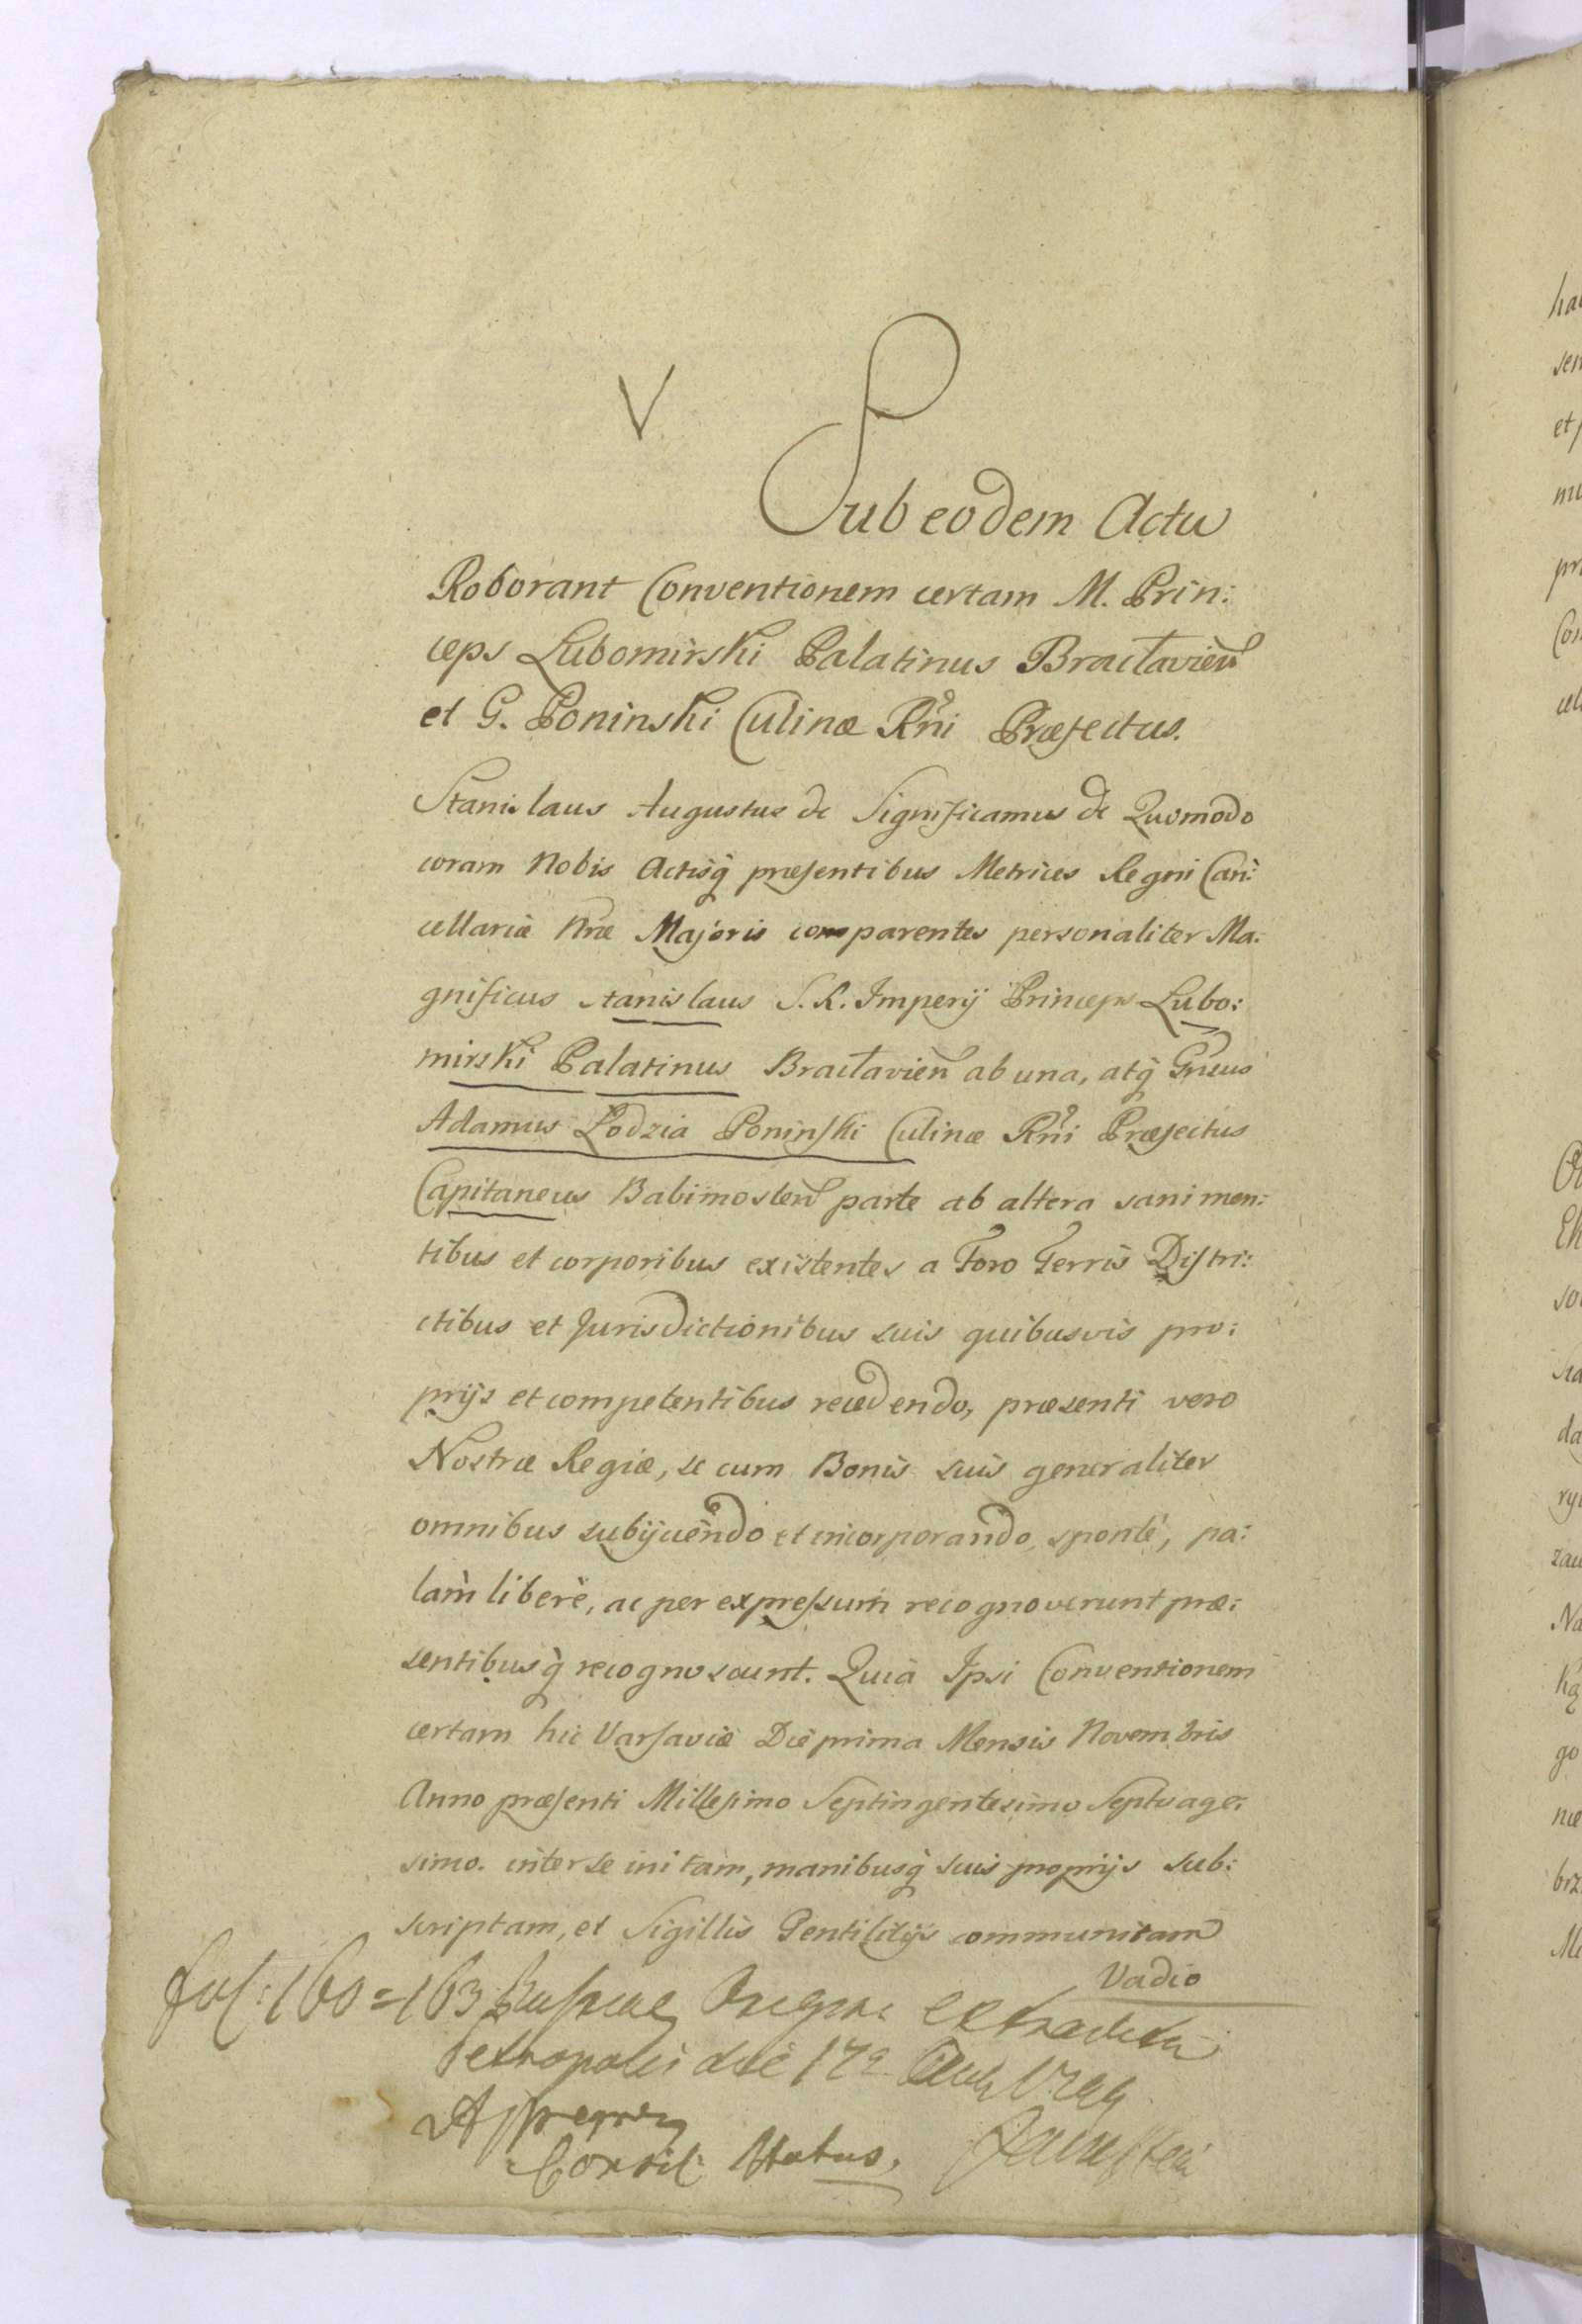 V
Sub eodem Actu
Roborant Conventionem certam M. Prin:
ceps Lubomirski Palatinus Bracłavien̄
et G. Poninski Culinæ Rñi Præfectus.
Stanislaus Augustus &c Significamus &c Quomodo
coram Nobis Actisq̀ præsentibus Metrices Regni Can:
cellariæ Nræ Majoris comparentes personaliter Ma:
gnificus Stanislaus S. R. Imperij Princeps Lubo:
mirski Palatinus Bracłavien̄ ab una, atq̀ Gñsus
Adamus Łodzia Poninski Culinæ Rñi Præfectus
Capitaneus Babimosten̄ parte ab altera sani men:
tibus et corporibus existentes a Foro Terris Distri:
ctibus et Jurisdictionibus suis quibusvis pro:
prijs et competentibus recedendo, præsenti vero
Nostræ Regiæ, se cum Bonis suis generaliter
omnibus subijcèndo et incorporando, spontè, pa:
làm liberè, ac per expressum recognoverunt præ:
sentibusq̀ recognoscunt. Quià Ipsi Conventionem
certam hic Varsaviæ Die prima Mensis Novembris
Anno præsenti Millesimo Septingentesimo Septuage:
simo. inter se initam, manibusq̀ suis proprijs sub:
scriptam, et Sigillis Gentilitijs communitam
Vadio
fol: 160=163 extradita
Petropoli die 17a
Consil: Status.